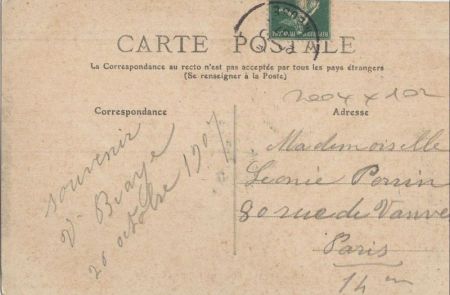 CARTE POSTALE
La Correspondance au recto n'est pas acceptée par tous les pays étrangers
(Se renseigner à la Poste)
Correspondance
Adresse
souvenir
V.
20 octobre 1907
Mademoiselle
Léonie Perrin
80 rue de Vanves
Paris
14 m